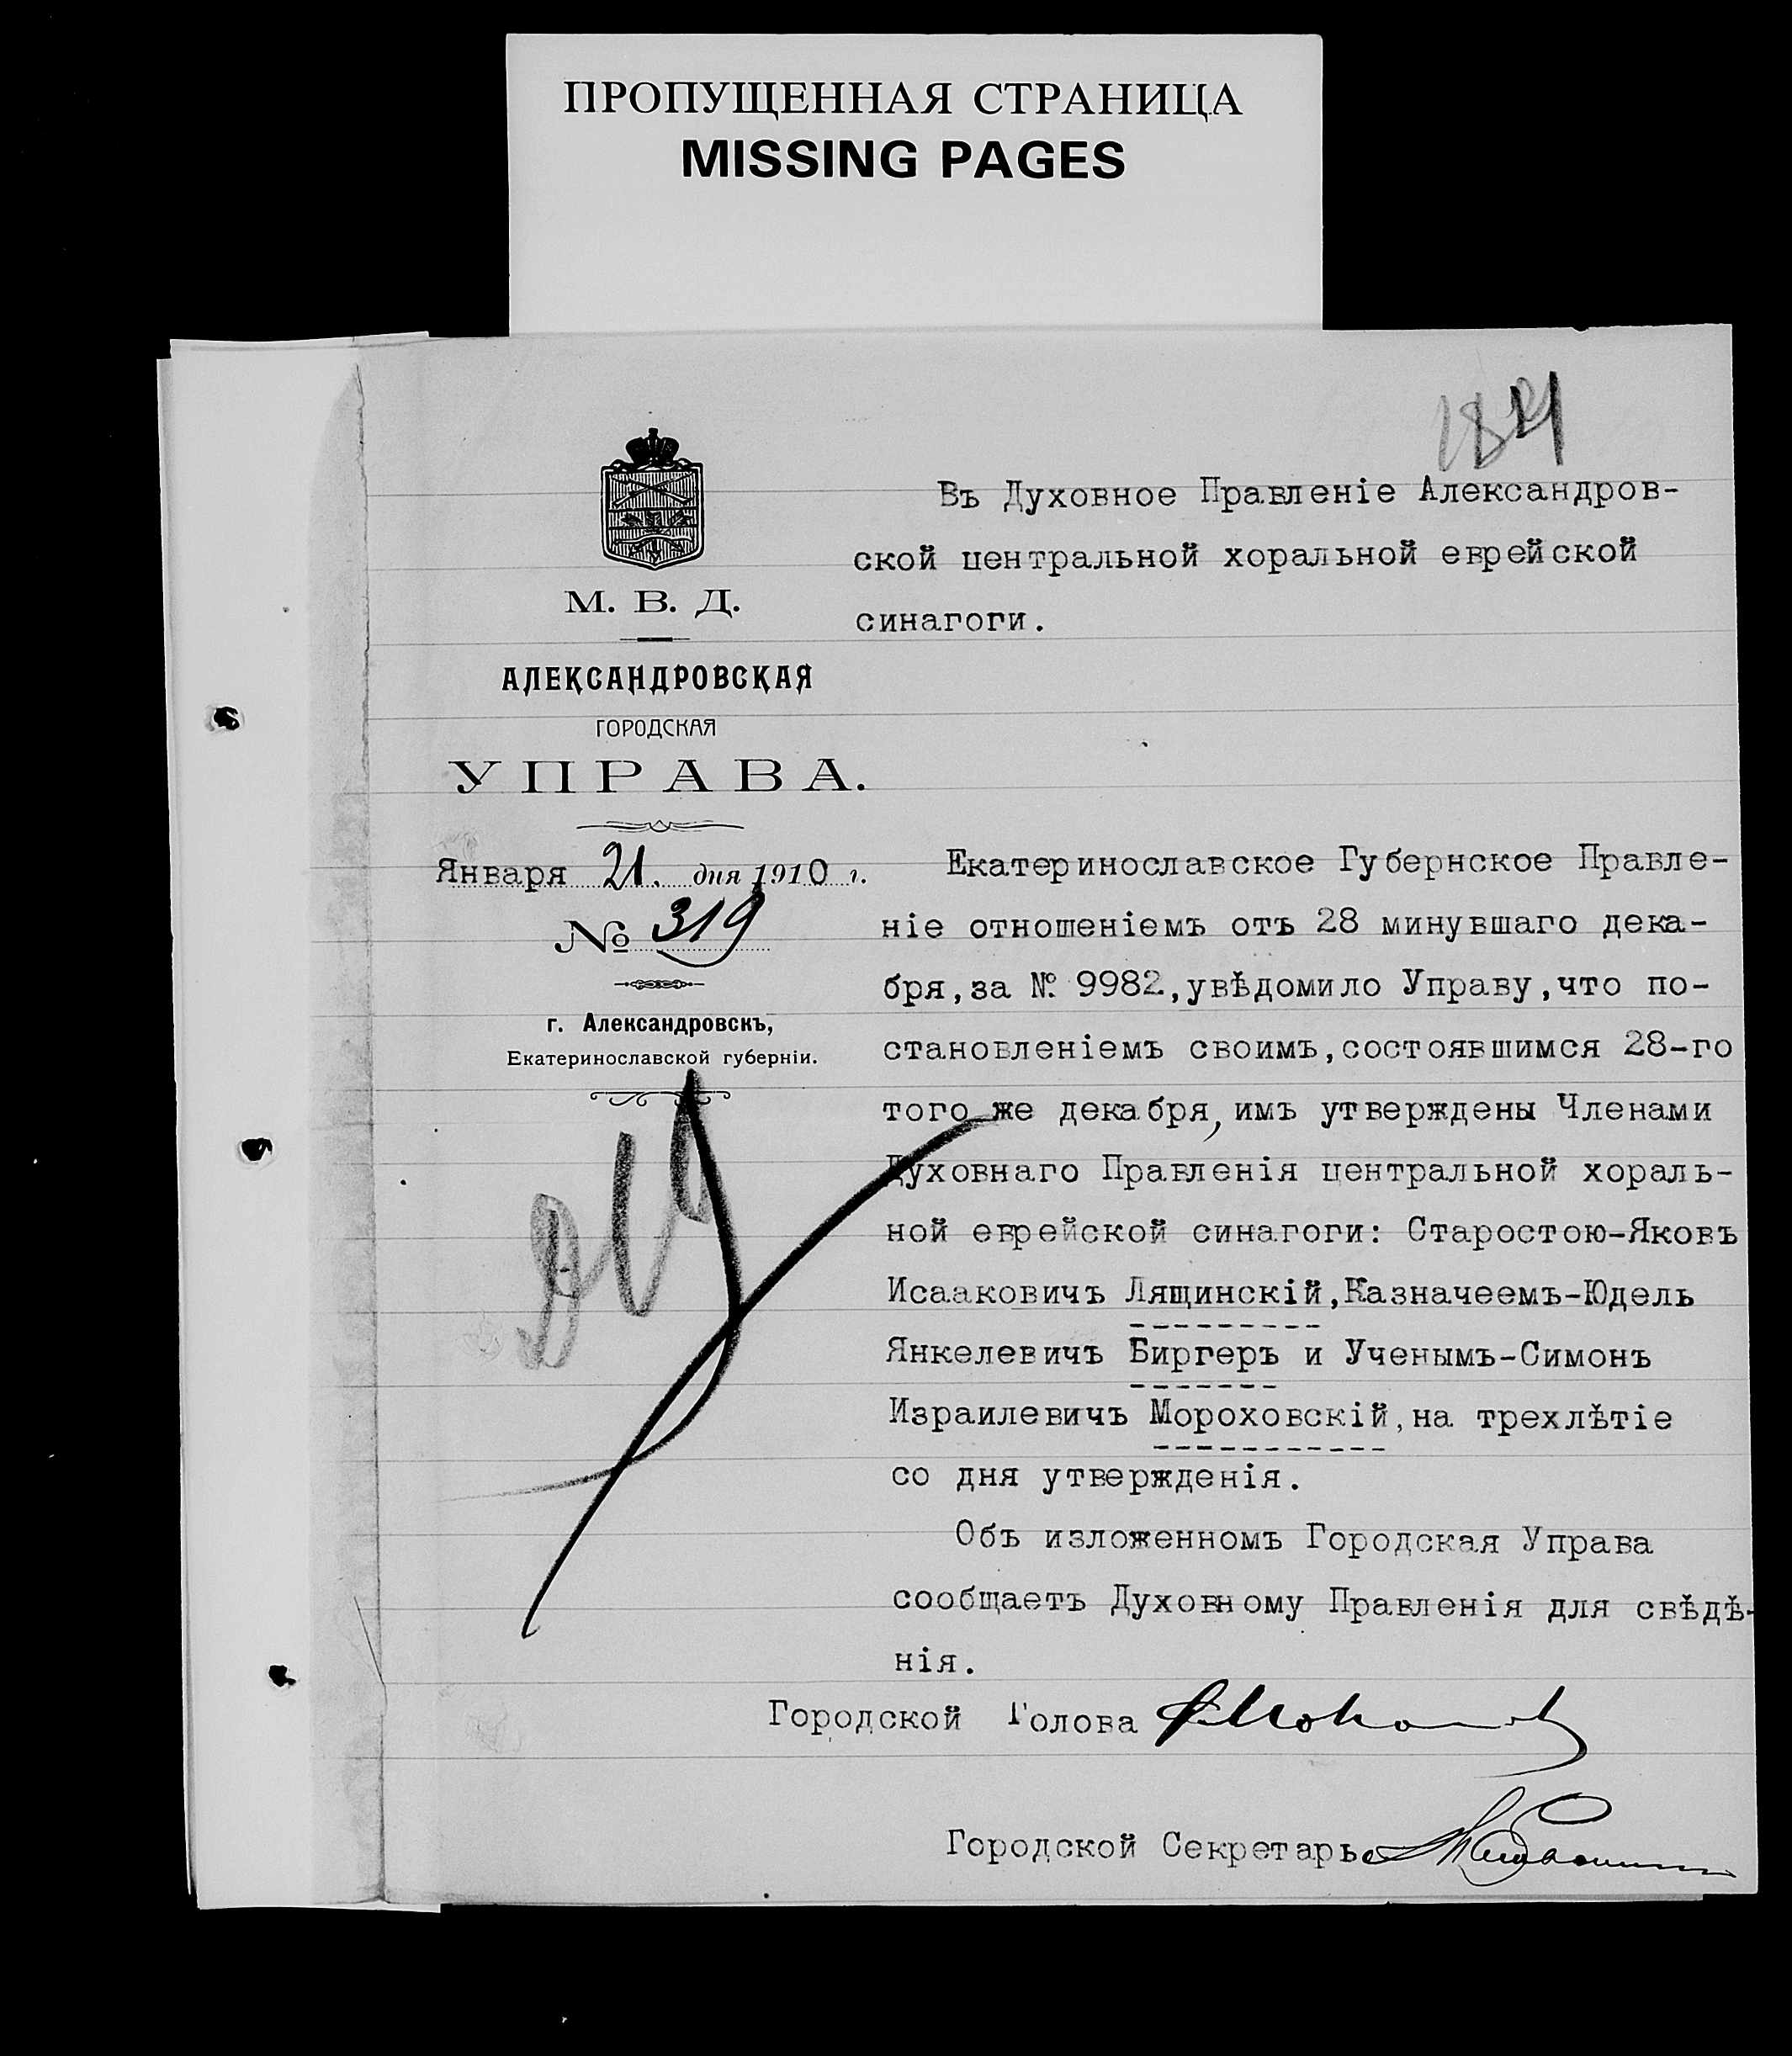 ПРОПУЩЕННАЯ СТРАНИЦА
MISSING PAGES
Въ Духовное Правленіе Александров-
ской центральной хоральной еврейской
синагоги.
М. В. Д.
АЛЕКСАНДРОВСКАЯ
ГОРОДСКАЯ
УПРАВА.
Января 21. дня 1910 г.
№ 319
г. Александровскъ,
Екатеринославской губерніи.
Екатеринославское Губернское Правле-
ніе отношеніемъ отъ 28 минувшаго дека-
бря,за № 9982,увѣдомило Управу,что по-
становленіемъ своимъ,состоявшимся 28-го
того же декабря, имъ утверждены Членами
Духовнаго Правленія центральной хораль-
ной еврейской синагоги: Старостою-Яковъ
Исааковичъ Лящинскій,Казначеемъ-Юдель
Янкелевичъ Биргеръ и Ученымъ-Симонъ
Израилевичъ Мороховскій,на трехлѣтіе
со дня утвержденія.
Объ изложенномъ Городская Управа
сообщаетъ Духовному Правленія для свѣдѣ-
нія.
Городской Голова
Городской Секретарь